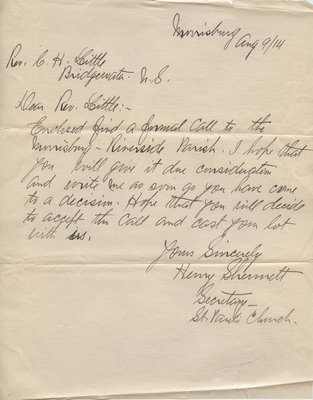 Morrisburg
Aug 9/14
Rev. C. H. Little
Bridgewater N.S.
Dear Rev. Little:-
Enclosed find a formal call to the
Morrisburg - Riverside Parish. I hope that
you will give it due consideration
and write me as soon as you have come
to a decision. Hope that you will decide
to accept the call and cast your lot
with us.
Yours Sincerely
Henry
Secretary-
St. Pauls Church.